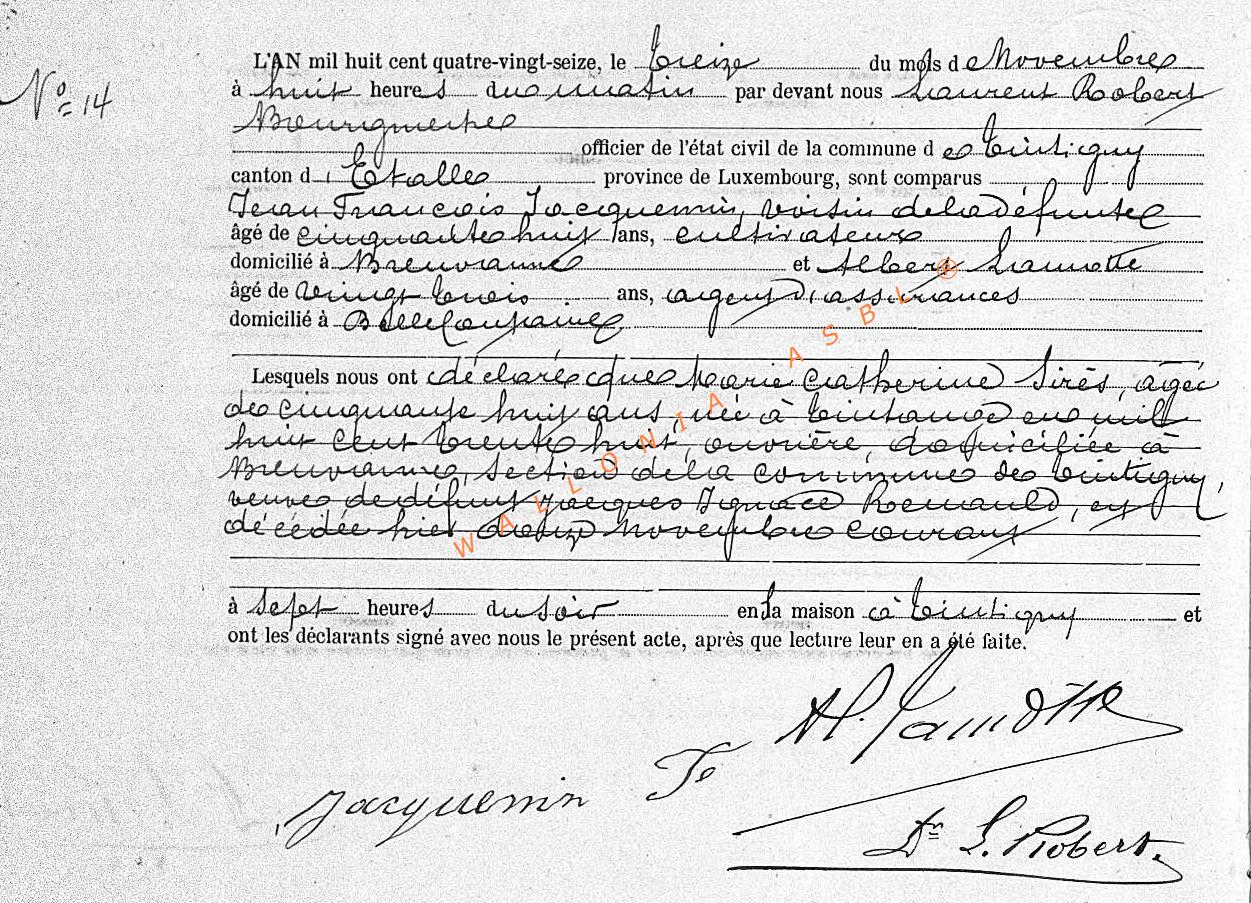 N° 14
L'AN mil huit cent quatre-vingt-seize, le treize du mois de Novembre
à huit heures du matin par devant nous Laurent Robert
Bourgmestre
officier de l'état civil de la commune de Tintigny
canton d'Etalle province de Luxembourg, sont comparus
Jean François Jacquemin, voisin de la défunte
âgé de cinquante huit ans, cultivateur
domicilié à Breuvanne et Albert Lamotte
âgé de vingt trois ans, agent d'assurances
domicilié à Bellefontaine
Lesquels nous ont déclaré que Marie Catherine Sirès, agée
de cinquante huit ans, née à Tintange en mil
huit cent trente huit, ouvrière, domiciliée à
Breuvanne, section de la commune de Tintigny,
veuve de défunt Jacques Ignace Renauld, est
décédée hier douze Novembre courant
à sept heures du soir en la maison à Tintigny et
ont les déclarants signé avec nous le présent acte, après que lecture leur en a été faite.
Al. Lamotte
Jacquemin J
Dr L. Robert.
WALLONIA ASBL ©